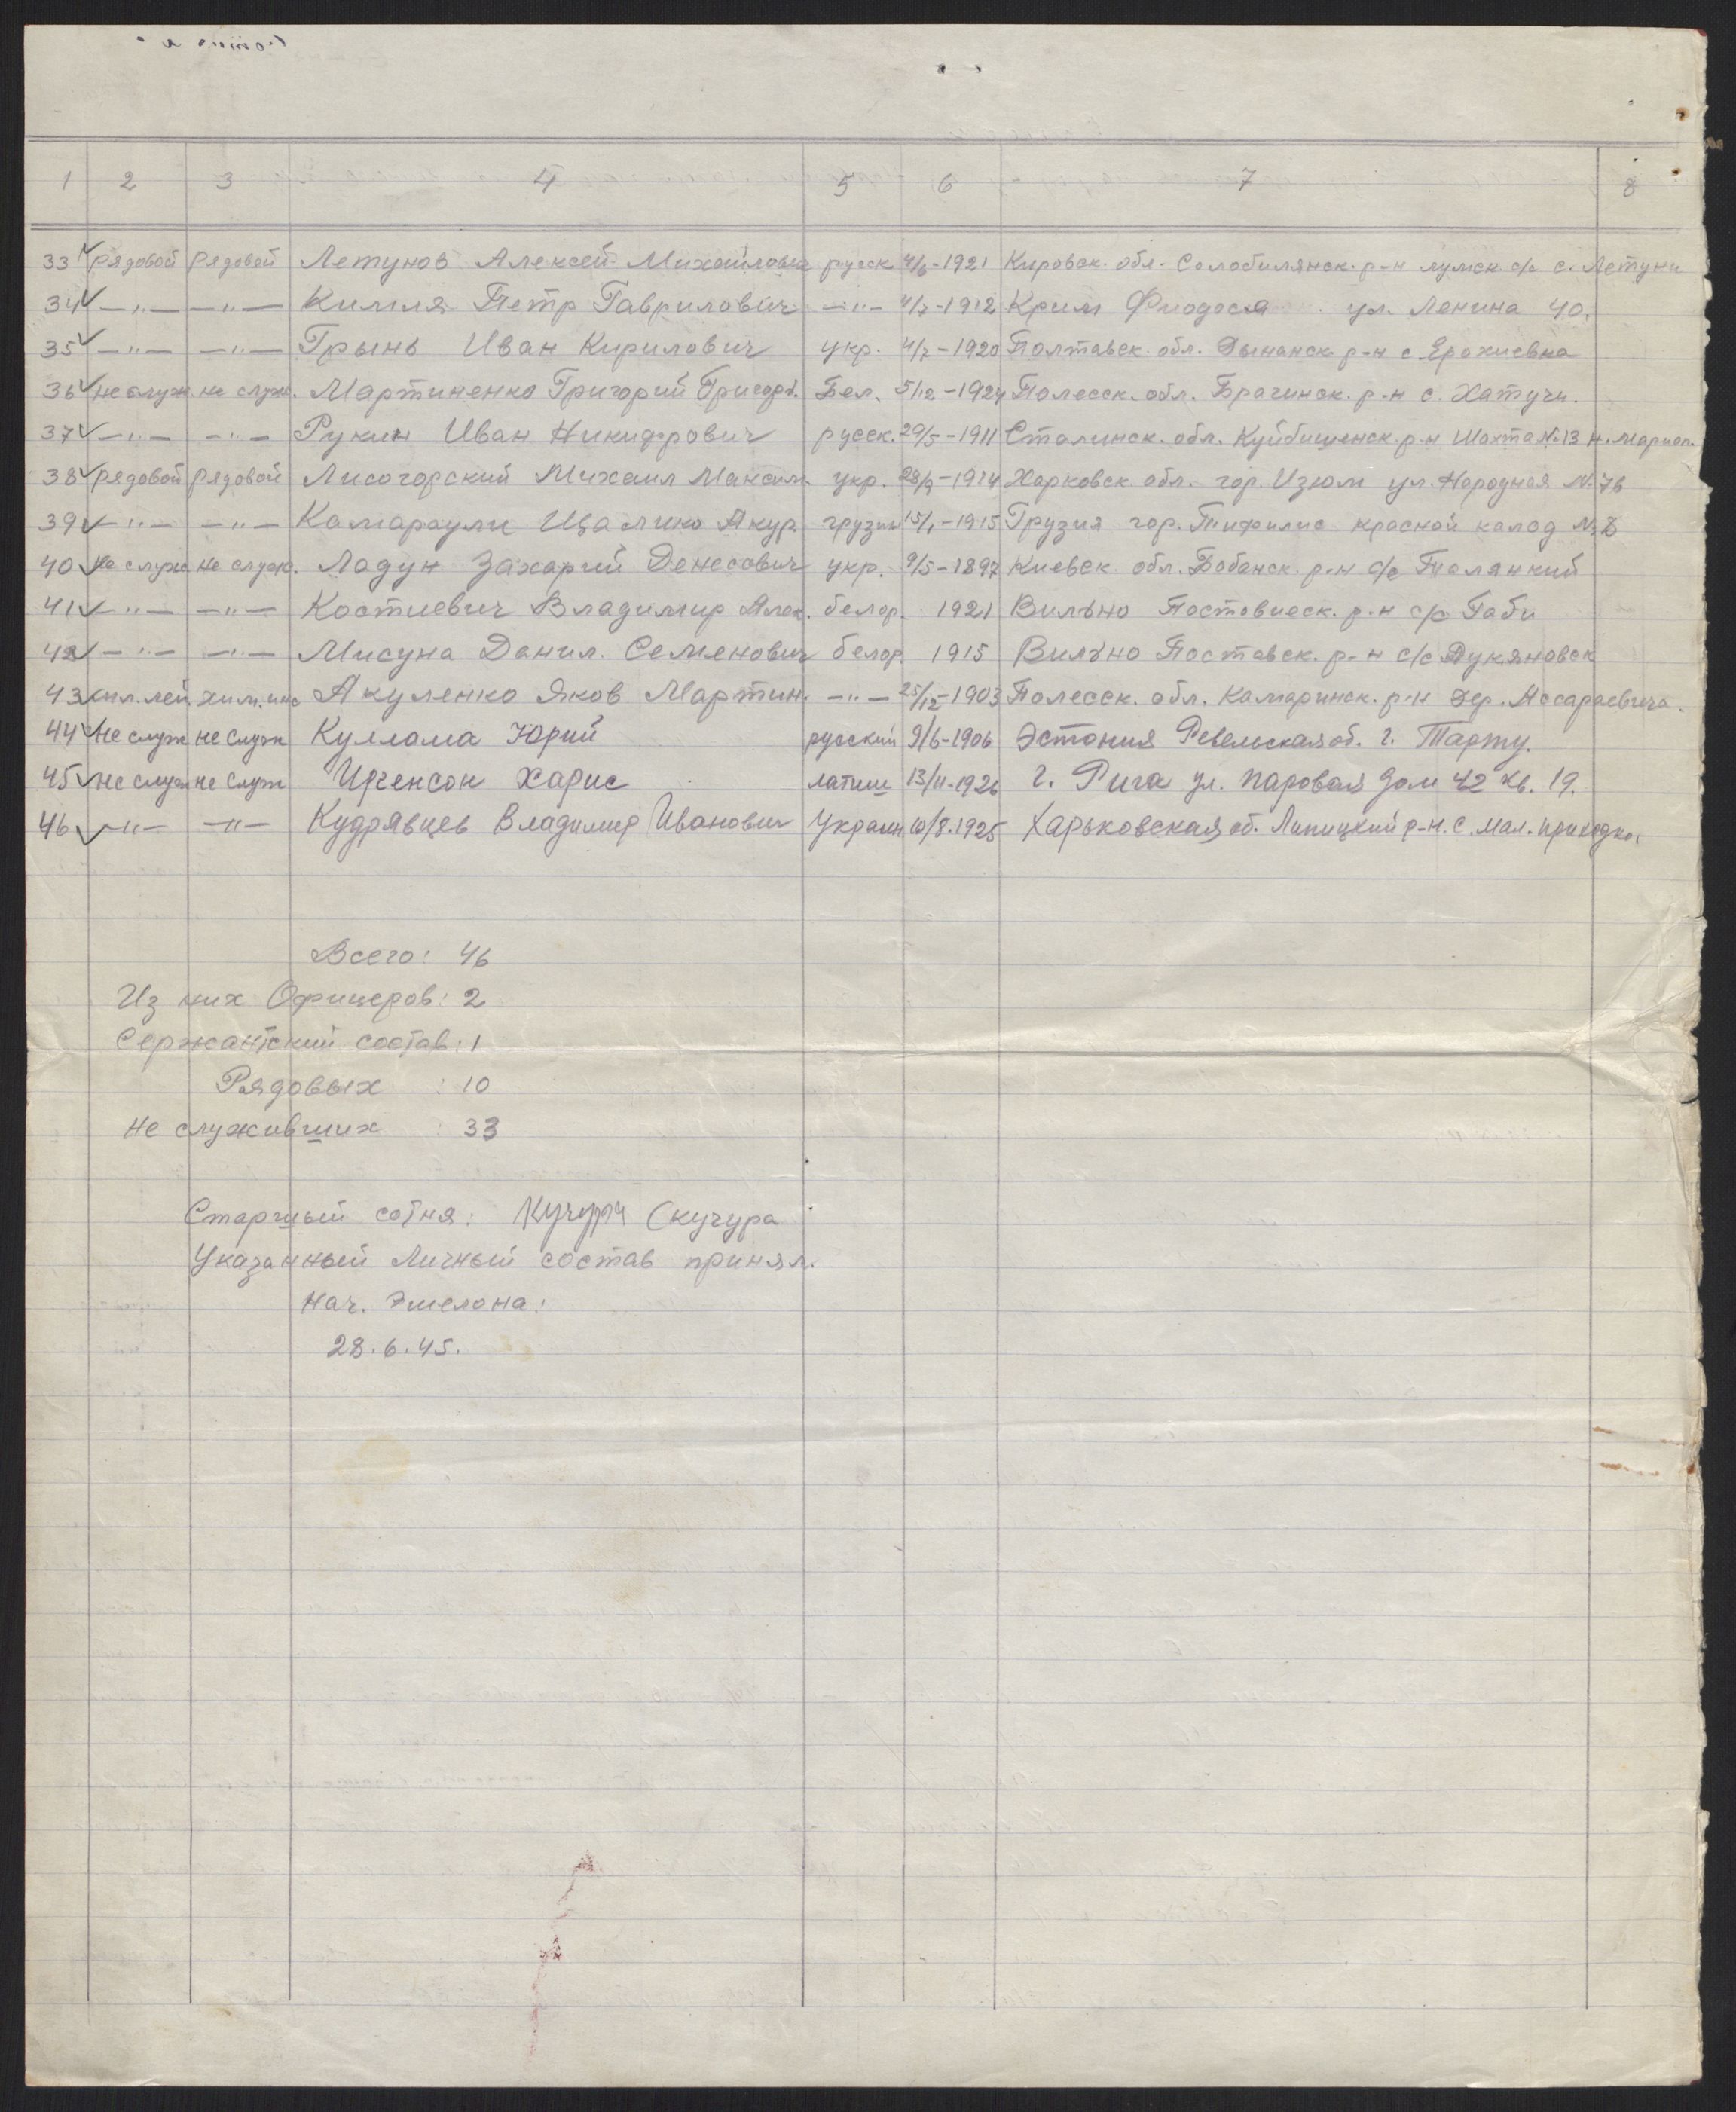 1 2 3 4 5 6 7 8
33 рядовой рядовой Летунов Алексей Михайлович русск 4/6-1921 Кировск. обл. Солобилянск. р-н с/с с. Летуни
34 —"— —"— Килиля Петр Гаврилович —"— 4/7-1912 Крим Фиодося ул. Ленина 40.
35 —"— —"— Грынь Иван Кирилович укр. 4/7-1920 Полтавск. обл. р-н с Ерохиевка
36 не служ. не служ. Мартиненко Григорий Григорь. Бел. 5/12-1924 Полесск. обл. Брагинск. р-н с. Хатучи.
37 —"— —"— Рукин Иван Никифрович русск. 29/5-1911 Сталинск. обл. Куйбишенск. р-н Шахта №13 н. Мариоп.
38 рядовой рядовой Лисогорский Михаил Максим. укр. 28/9-1914 Харковск. обл. гор. Изюм ул. Народная №76
39 —"— —"— Камараули Шалико Якур. грузин 15/1-1915 Грузия гор. Тифилис красной калод №8
40 не служ не служ. Ладун Захарий Денесович укр. 9/5-1897 Киевск. обл. Бобанск. р-н с/с Полянкий
41 —"— —"— Костиевич Владимир Алек. белор. 1921 Вильно Поставиеск. р-н с/с Габи
42 —"— —"— Мисуна Данил. Семенович белор. 1915 Вильно Поставск. р-н с/с Дукяновск
43 мл. лей. хим. инс Акуленко Яков Мартин. —"— 25/12-1903 Полесск. обл. Камаринск. р-н дер.
44 не служ не служ Куллама Юрий русский 9/6-1906 Эстония Ревельская об. г. Тарту.
45 не служ не служ Иргенсон Харис латиш 13/11-1926 г. Рига ул. Паровая дом 42 кв. 19.
46 —"— —"— Кудрявцев Владимир Иванович Украин 10/8.1925 Харьковская об. Липицкий р-н. с. мал. приходко.
Всего: 46
Из них Офицеров: 2
Сержантский состав: 1
Рядовых : 10
Не служивших : 33
Старший сотня: Кучура (кучура
Указанный Личный состав принял.
Нач. Эшелона:
28.6.45.